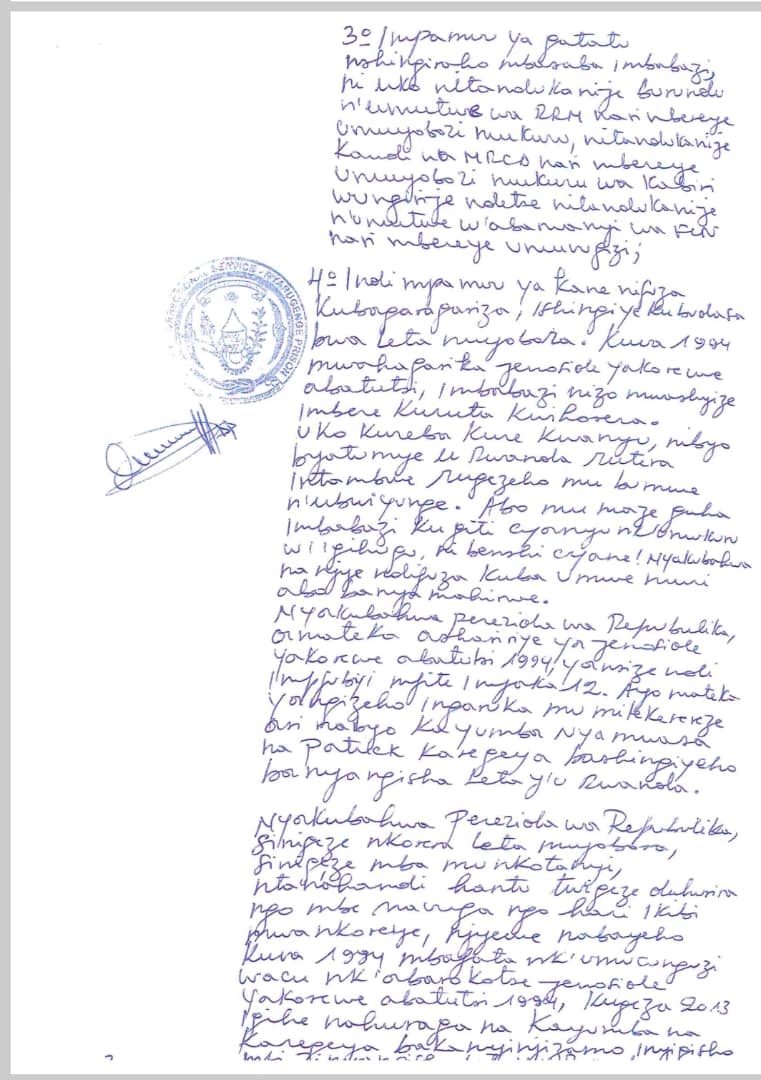 3º Impamvu ya gatatu
nshingiraho mbasaba imbabazi,
ni uko nitandukanije burundu
n'umutwe wa RRM nari mbereye
umuyobozi mukuru, nitandukanije
kandi na MRCD nari mbereye
umuyobozi mukuru wa kabiri
wungirije ndetse nitandukanije
n'umutwe w'abarwanyi wa FLN
nari mbereye umuvugizi;
CORRECTIONAL SERVICE - NYARUGENGE PRISON
4º Indi mpamvu ya kane nifuza
kubagaragariza, ishingiye ku budasa
bwa Leta muyobora. Kuva 1994
mwahagarika jenoside yakorewe
abatutsi, imbabazi nizo mwashyize
imbere kuruta kwihorera.
Uko kureba kure kwanyu, nibyo
byatumye u Rwanda rutera
intambwe rugezeho mu bumwe
n'ubwiyunge. Abo mu maze guha
imbabazi ku giti cyanyu nk'umukuru
w'igihugu, ni benshi cyane! Nyakubahwa
na njye ndifuza kuba umwe muri
abo banyamahirwe.
Nyakubahwa Perezida wa Repubulika,
amateka ashaririye ya jenoside
yakorewe abatutsi 1994, yansize ndi
impfubyi mfite imyaka 12. Ayo mateka
yangizeho ingaruka mu mitekerereze
ari nabyo Kayumba Nyamwasa
na Patrick Karegeya bashingiyeho
banyangisha Leta y'u Rwanda.
Nyakubahwa Perezida wa Repubulika,
sinigeze nkorera Leta muyobora,
sinigeze mba mu nkotanyi,
ntanahandi hantu twigeze duhurira
ngo mbe navuga ngo hari ikibi
mwankoreye, njyewe nabayeho
kuva 1994 mbafata nk'umucunguzi
wacu nk'abarokotse jenoside
yakorewe abatutsi 1994, kugeza 2013
igihe nahuraga na Kayumba na
Karegeya bakanyinjizamo inyigisho